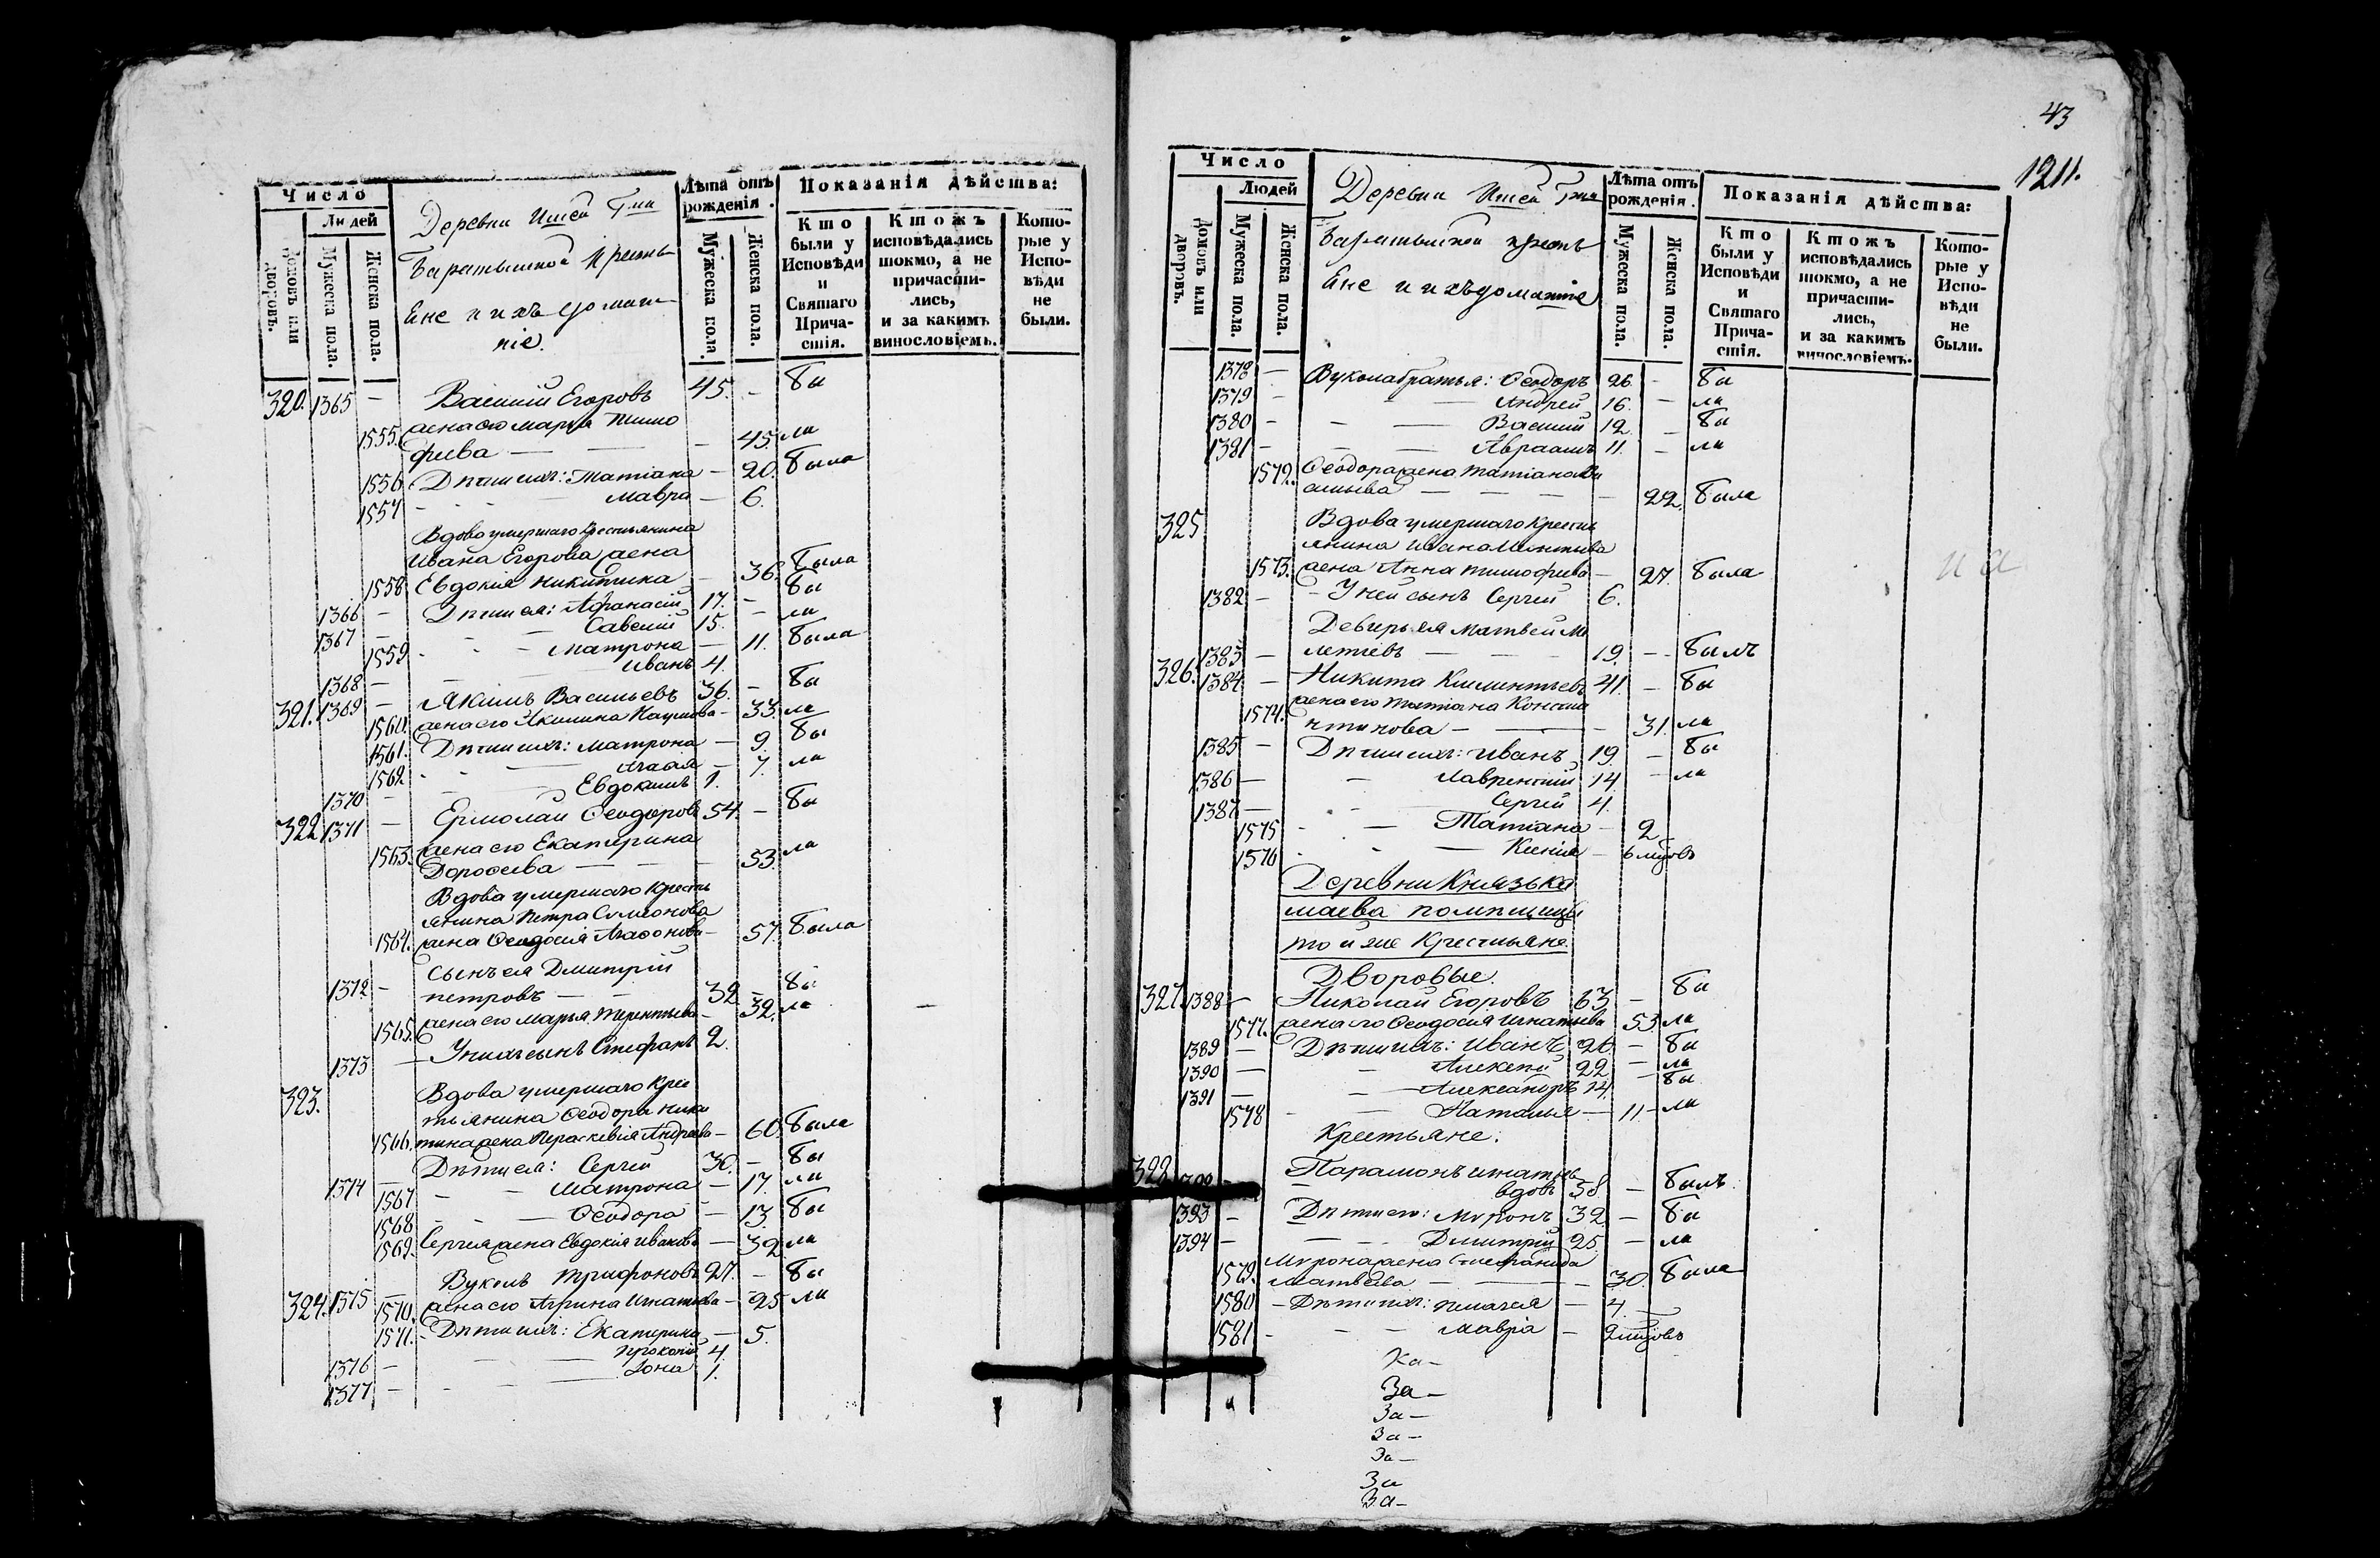 Число
Людей
Домовъ или дворовъ.
Мужеска пола.
Женска пола.
Деревни Ишей Гжи
Баратышкой Крестья
Ене и ихъ домаш
ніе.
Лѣта отъ рожденія.
Мужеска пола.
Женска пола.
Показанія дѣйства:
Кто были у Исповѣди и Святаго Прича- стія.
Ктожъ исповѣдались токмо, а не причасти- лись, и за какимъ винословіемъ.
Кото- рые у Испо- вѣди не были.
320. 1365 — Василій Егоровъ 45. — бы
1555. жена его Марѳа Тимо
фѣева — — 45. ли
1556. Дѣти ихъ: Татіана — 20. была
1557 - - Мавра — 6.
Вдова умершаго Крестьянина
Ивана Егорова жена
1558 Евдокія Никитина — 36. была
1366 — Дѣти ея: Афанасій 17. — бы
1367 — Савелій 15. — ли
1559. - - Матрона — 11. была
1368 — Иванъ 4.
321. 1369 — Якимъ Васильевъ 36. — бы
1560. жена его Акилина Наумова — 33. ли
1561. Дѣти ихъ: Матрона — 9. бы
1562 - Агафія — 7. ли
1370 — Евдокимъ 1.
322 1371 — Ермолай Ѳеодоровъ 54. — бы
1563. жена его Екатерина
Дороѳеева — — 53. ли
Вдова умершаго Кресть
янина Петра Симеонова
1564. жена Ѳеодосія Агаѳонова — 57. была
сынъ ея Дмитрій
1372 — Петровъ — 32 — бы
1565. жена его Марья Терентьева — 32. ли
1373 — У нихъ сынъ Стефанъ 2.
323. Вдова умершаго Крес
тьянина Ѳеодора Ники
1566. тина жена Параскевія Андреева — 60. была
1374 — Дѣти ея: Сергей 30. — бы
1567 - - Матрона — 17. ли
1568 - - Ѳеодора — 13. бы
1569. Сергея жена Евдокія Иванова — 32 ли
324. 1375 — Вуколъ Трифоновъ 27. — бы
1570. жена его Агрипа Игнатьева — 25 ли
1571. - Дѣти ихъ: Екатерина — 5.
1376 — Прокопій 4.
1377 — Iона 1.
43
1211.
Число
Людей
Домовъ или дворовъ.
Мужеска пола.
Женска пола.
Деревни Ишей Гжи
Баратышкой крестья
Ене и ихъ домашніе
Лѣта отъ рожденія.
Мужеска пола.
Женска пола.
Показанія дѣйства:
Кто были у Исповѣди и Святаго Прича- стія.
Ктожъ исповѣдались токмо, а не причасти- лись, и за какимъ винословіемъ.
Кото- рые у Испо- вѣди не были.
1378 — Вукола братья: Ѳеодоръ 26. — бы
1379 — Андрей 16. — ли
1380 — Василій 12. — бы
1381 — Авраамъ 11. — ли
1572. Ѳеодора жена Татіана
— — 22. была
325 Вдова умершаго Кресть
янина Ивана
1573. жена Анна Тимофѣева — 27. была
1382 — У ней сынъ Сергей 6.
Деверь ея Матвей Ме
1383 — летіевъ — 19. — былъ
326. 1384 — Никита Климентьевъ 41. — бы
1574. жена его Татіана Конста
нтинова — — 31. ли
1385 — Дѣти ихъ: Иванъ 19. — бы
1386 — Лаврентій 14 — ли
1387 — Сергей 4.
1575 - — Татіана — 2
1576 - - — Ксенія — 6 мцовъ
Деревни Князька
маева помѣщицы
то и же Крестьяне.
Дворовые.
327. 1388 — Николай Егоровъ 63 — бы
1577. жена его Ѳеодосія Игнатьева 53 ли
1389 — Дѣти ихъ: Иванъ 26 — бы
1390 — Алексѣй 22 — ли
1391 — Александръ 14. бы
1578 — Наталья — 11 — ли
Крестьяне.
328 Парамонъ Игнатьевъ
вдовъ 58. — былъ
1393 — Дѣти его: Миронъ 32 — бы
1394 — Димитрій 25. — ли
1579. Мирона жена Стефанида
Матвѣева — — 30. была
1580 — Дѣти ихъ: Пелагея — 4.
1581 - — Мавра — 2 мцовъ
Ка—
За—
За—
За—
За—
За
За—